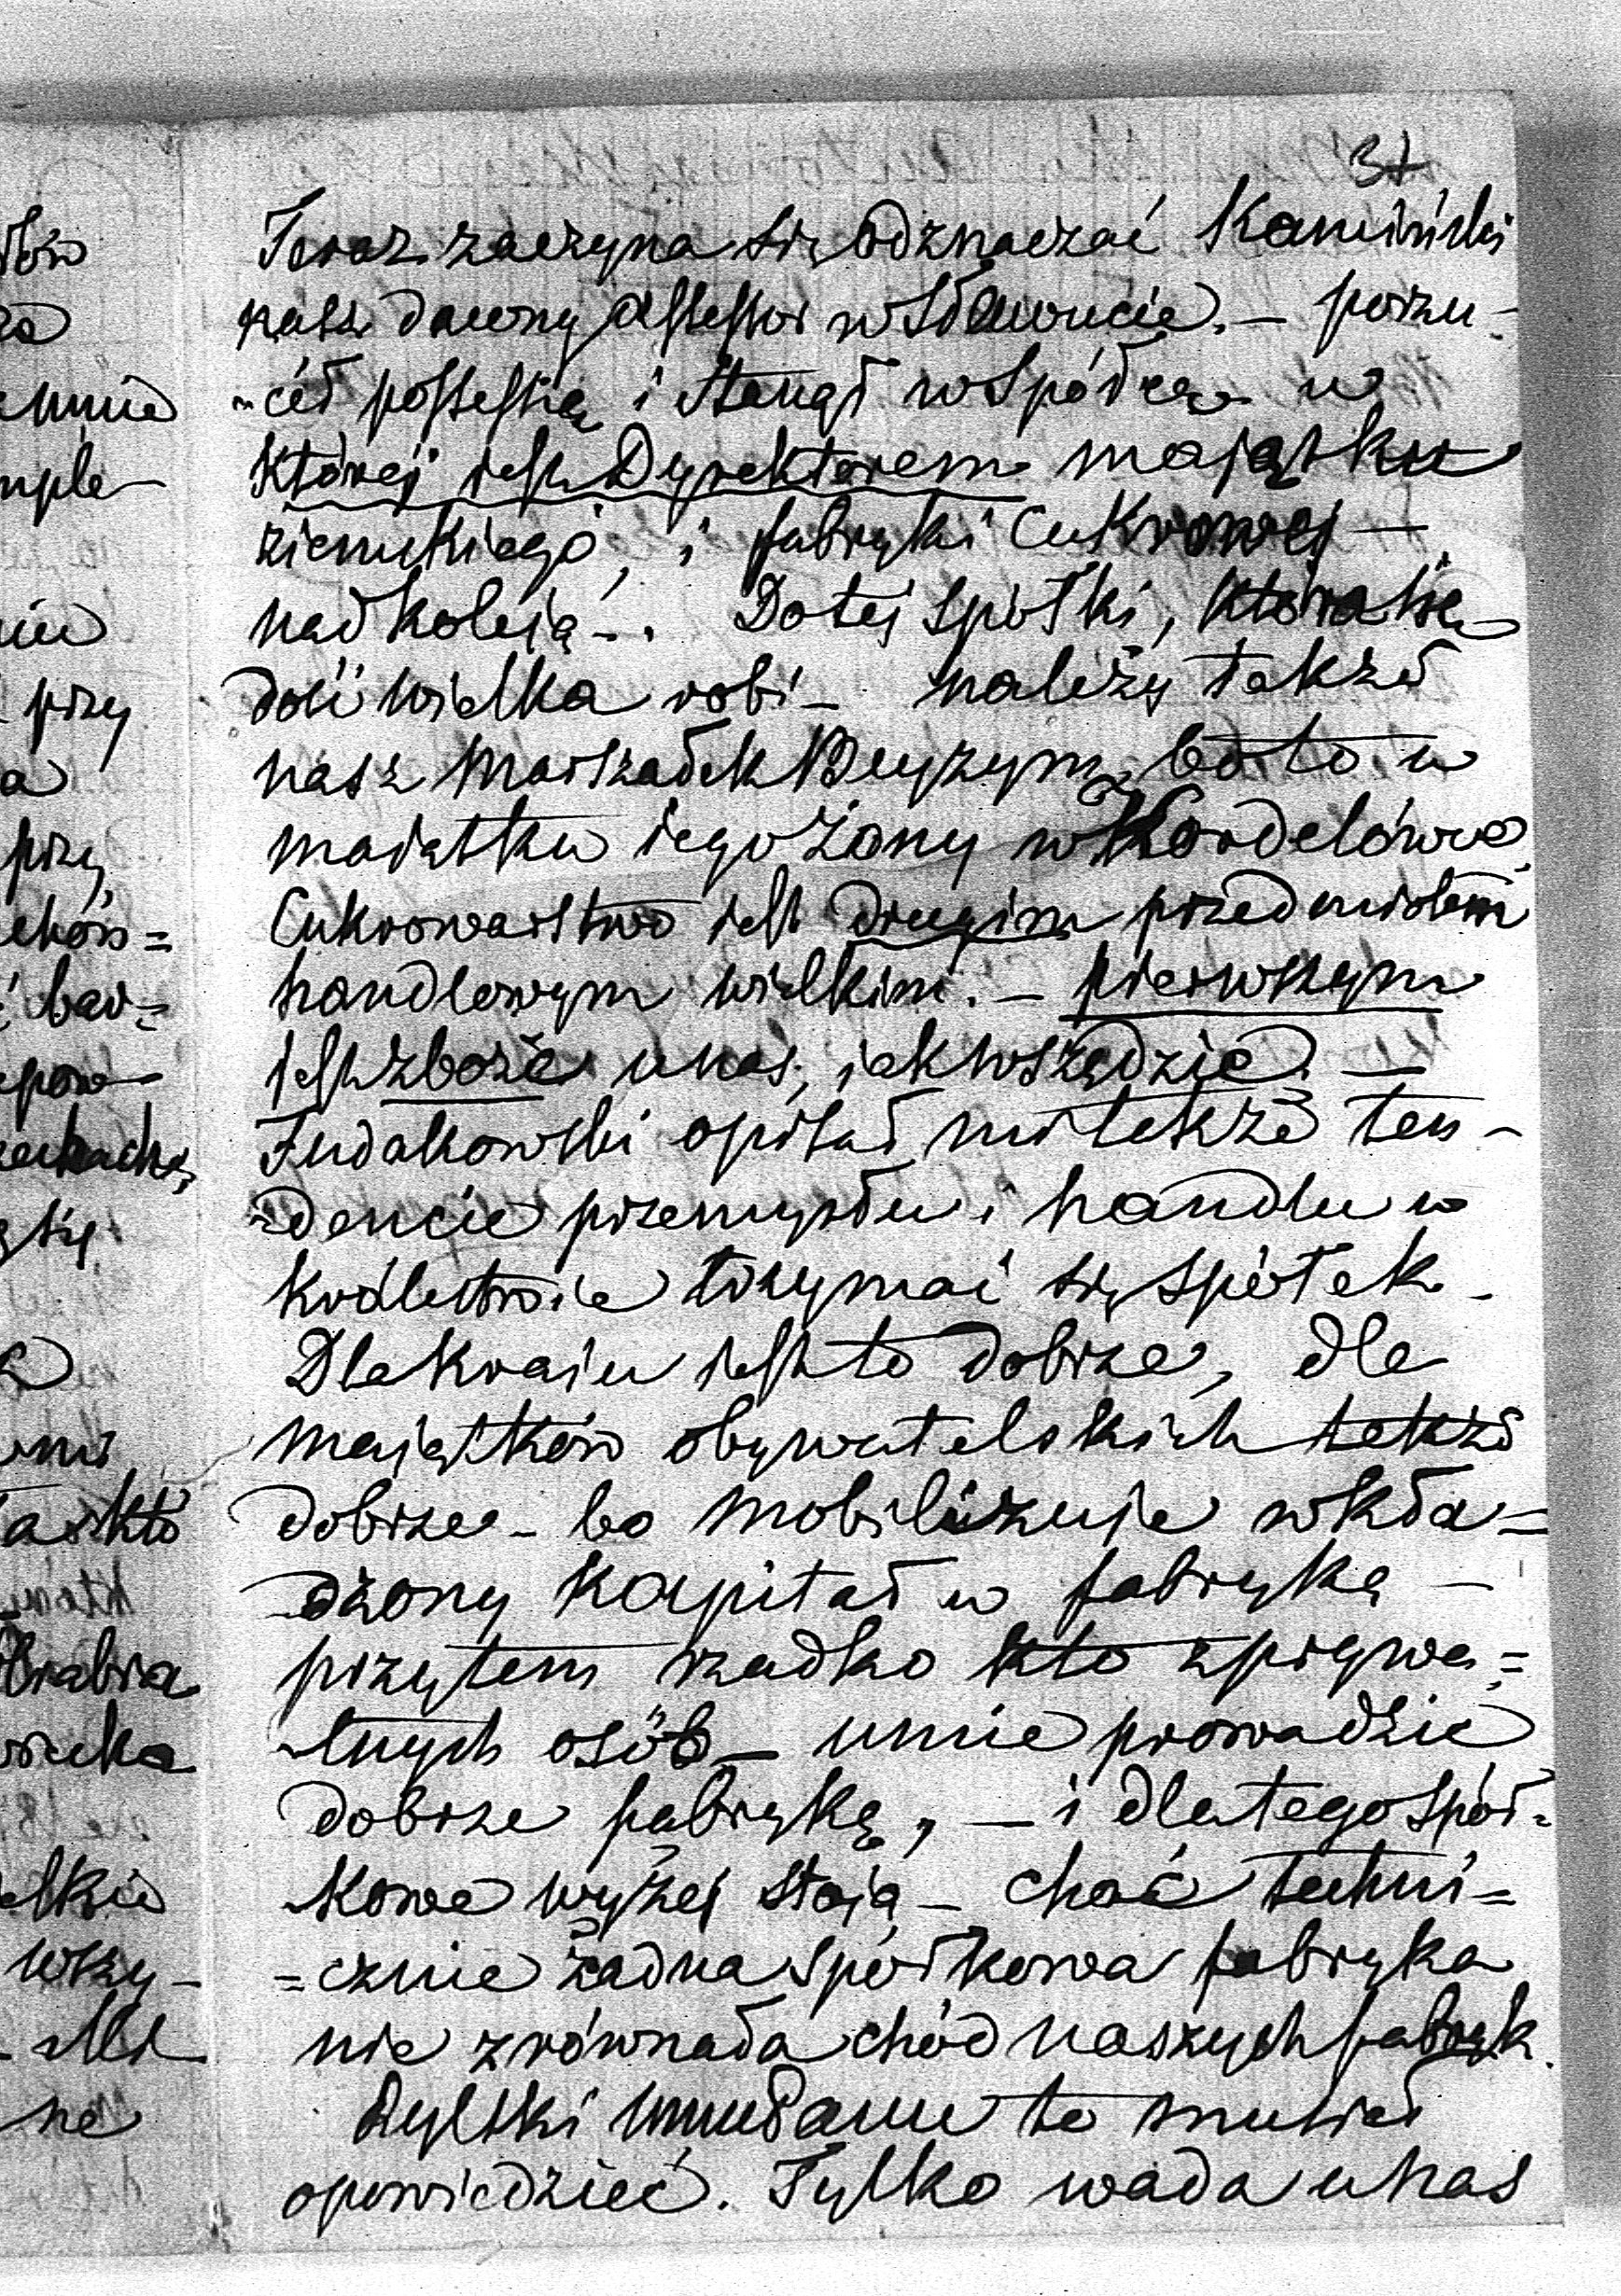 37
Teraz zaczyna się odznaczać Kamiński
nasz dawny assessor w Sławucie. – porzu-
-cił possessią i stanął w spółcę w
której jest Dyrektorem majątku
ziemskiego, i fabryki Cukrowej –
nad koleją –. Do tej spółki, która się
dość wielka robi – należy także
nasz Marszałek Beyzym, bo to w
majątku iego żony w Kordelówce
Cukrowarstwo jest drugim przedmiotem
handlowym wielkim. – pierwszym
jest zboże u nas, iak wszędzie. –
Judakowski opisał mi także ten-
-dencie przemysłu i handlu w
Królestwie trzymać się spółek –
Dla kraiu jest to dobrze, dla
maiątków obywatelskich także
dobrze – bo mobilizuje wkła-
dzony kapitał w fabrykę –
przytem rzadko kto z prywa=
tnych osób – umie prowadzić
dobrze fabrykę, – i dlatego spół-
kowe wyżej stoją – choć techni=
=cznie żadna spółkowa fabryka
nie zrównała chód naszych fabryk.
Rylski to musiał
opowiedzieć. Tylko wada u nas
ów
emnie
mple-
niu
- przy
a
przy
eków=
i bar=
epow-
a kto
obrabia
elkie
wszy-
ne